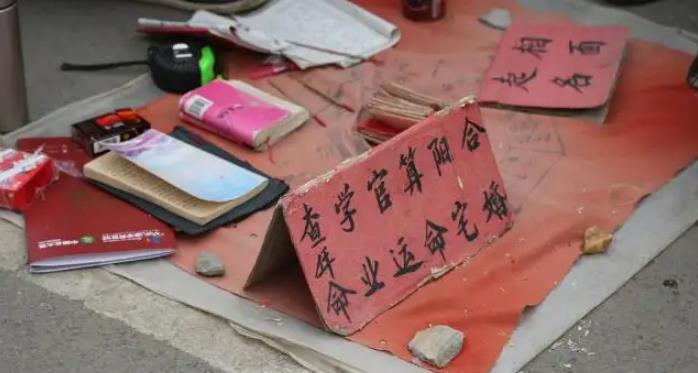 相面
起名
合婚
阳宅
算命
官运
学业
查年命